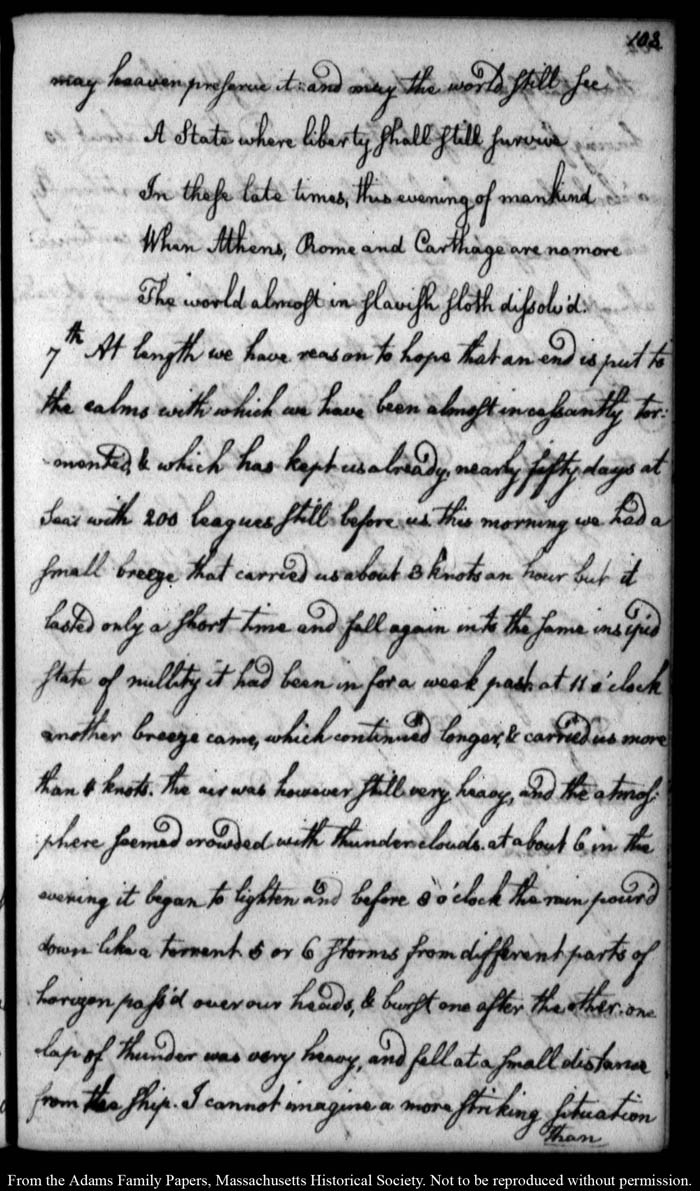 103
may heaven preserve it: and may the world still see
A State where liberty shall still survive
In these late times, this evening of mankind
When Athens, Rome and Carthage are no more
The world almost in slavish sloth dissolv'd.
7th At length we have reason to hope that an end is put to
the calms with which we have been almost incessantly tor:
:mented, & which has kept us already, nearly fifty days at
Sea: with 200 leagues still before us. this morning we had a
small breeze that carried us about 3 knots an hour but it
lasted only a short time and fell again into the same insipid
state of nullity it had been in for a week past. at 11 o'clock
another breeze came, which continued longer, & carried us more
than 4 knots. the air was however still very heavy, and the atmos:
:phere seemed crowded with thunder clouds. at about 6 in the
evening it began to lighten and before 8 o'clock the rain pour'd
down like a torrent 5 or 6 storms from different parts of
horizon pass'd over our heads, & burst one after the other. one
clap of thunder was very heavy, and fell at a small distance
from the ship. I cannot imagine a more striking situation
than
From the Adams Family Papers, Massachusetts Historical Society. Not to be reproduced without permission.